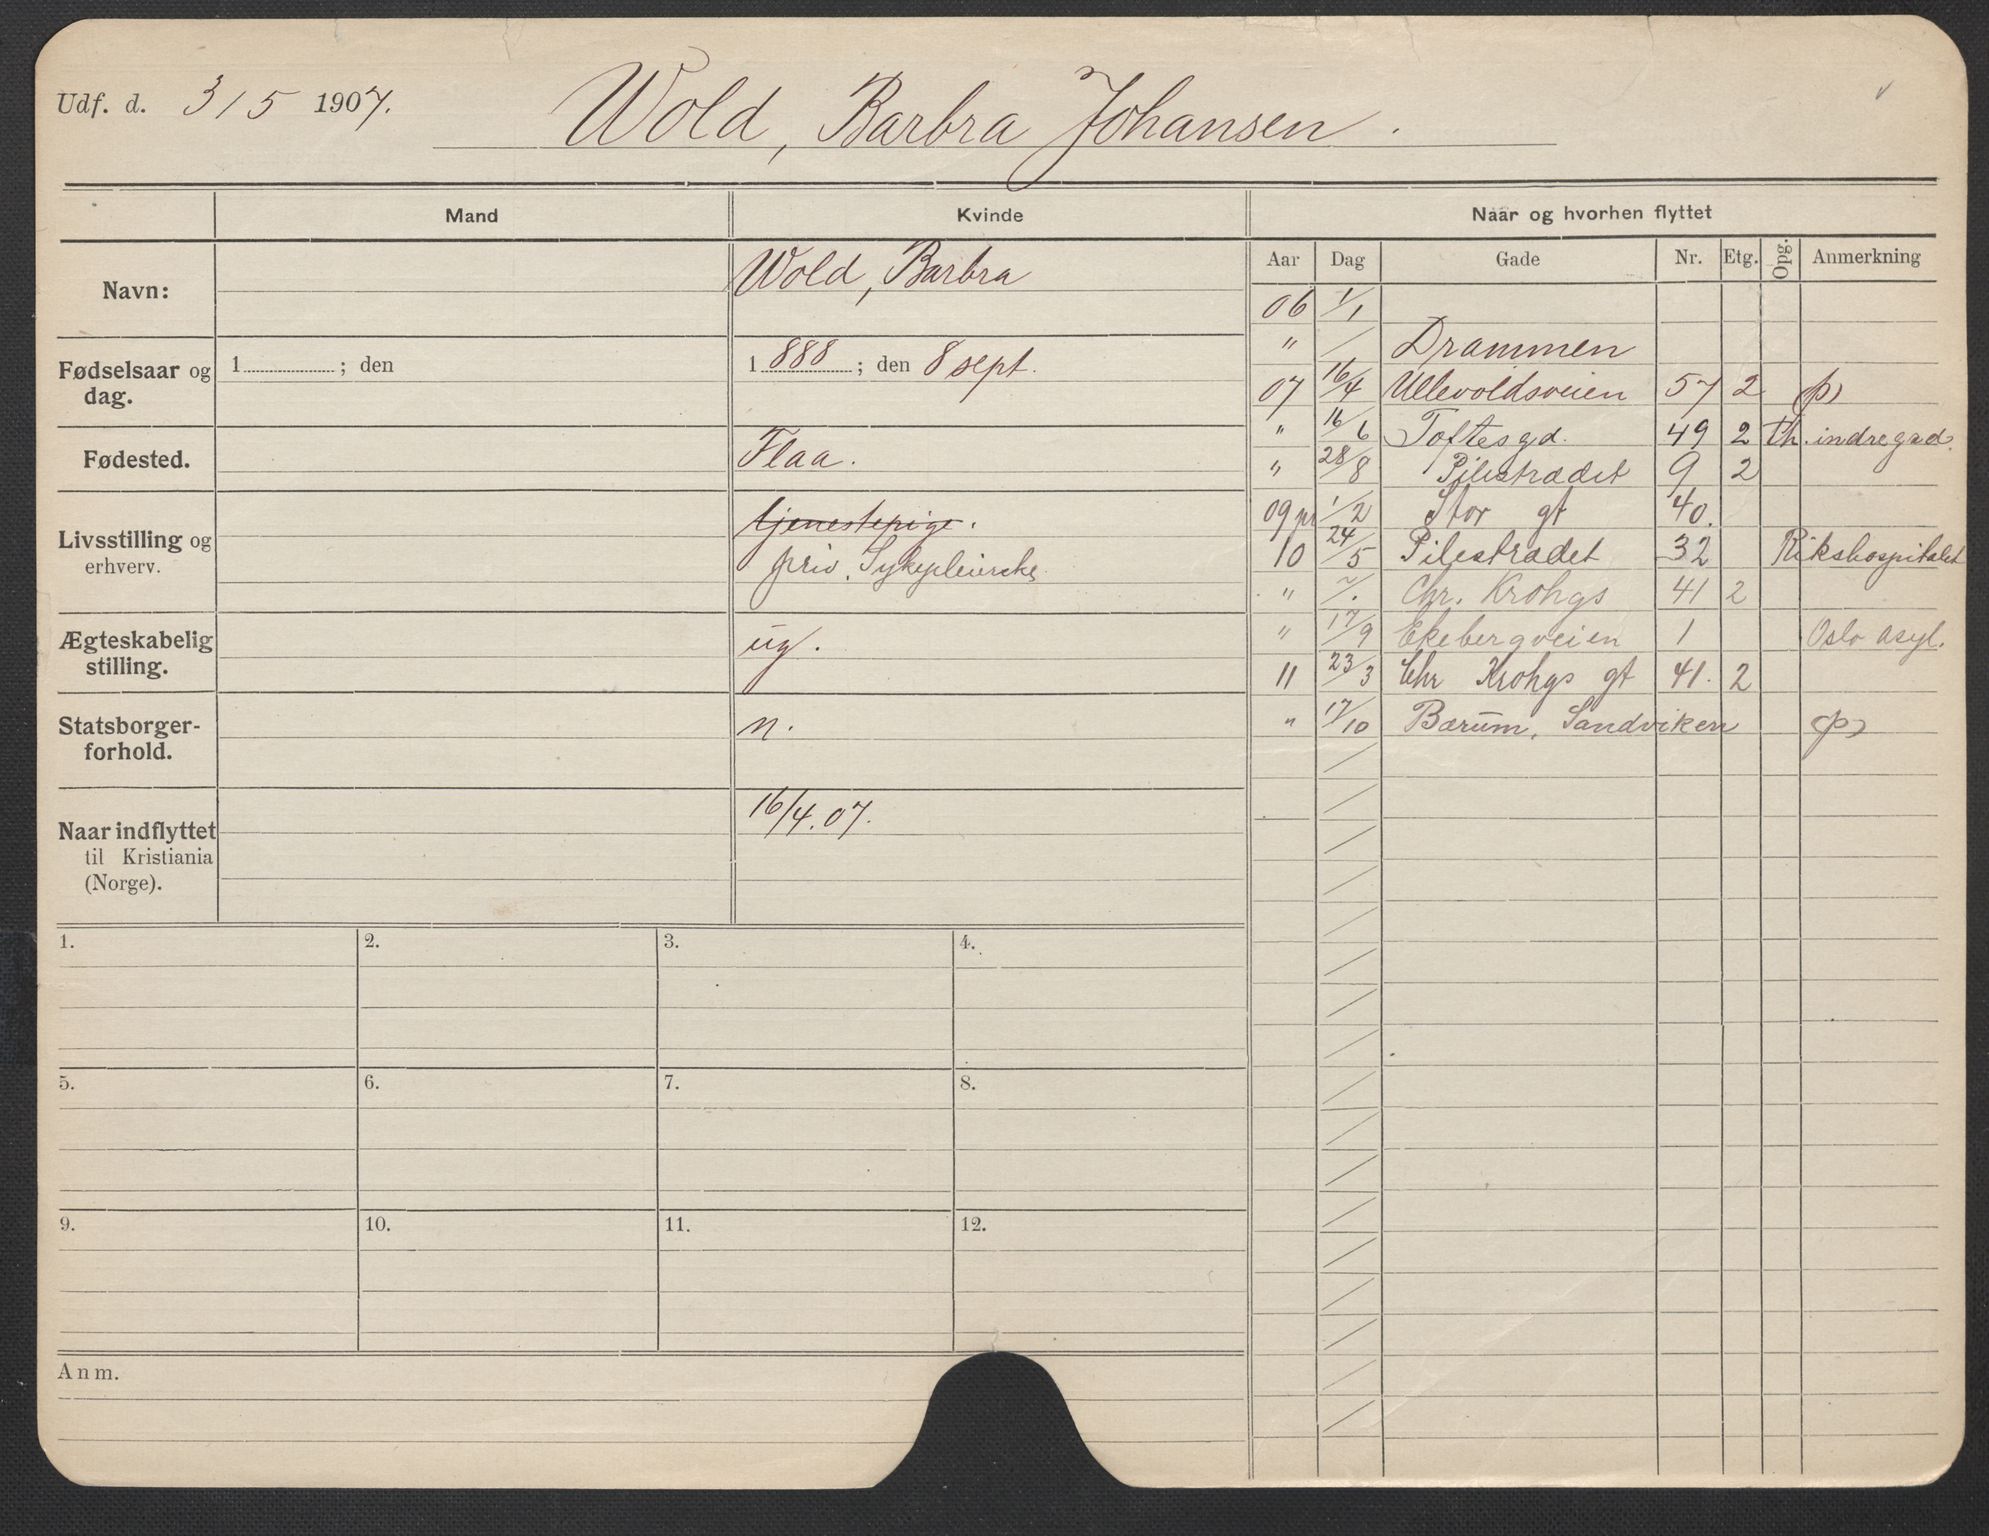 Udf. d. 3/5 1907. Wold, Barbra Johansen.
Mand Kvinde Naar og hvorhen flyttet
Aar Dag Gade Nr. Etg. Opg. Anmerkning
Navn: Wold, Barbra
Fødselsaar og dag. 1 ; den 1888 ; den 8 sept.
Fødested. Flaa.
Livsstilling og erhverv. tjenestepige.
priv. Sykepleierske
Ægteskabelig stilling. ug.
Statsborger-forhold. n.
Naar indflyttet til Kristiania (Norge). 16/4.07.
06 1/1
" / Drammen
07 16/4 Ullevoldsveien 57 2 (p)
" 16/6 Toftesgd. 49 2 th. indregad.
" 28/8 Pilestrædet 9 2
09 pr 1/2 Stor gt 40.
10 24/5 Pilestrædet 32 Rikshospitalet
" ~/. Chr. Krohgs 41 2
" 17/9 Ekebergveien 1 Oslo asyl.
11 23/3 Chr Krohgs gt 41. 2
" 17/10 Bærum, Sandviken (p)
1. 2. 3. 4.
5. 6. 7. 8.
9. 10. 11. 12.
Anm.